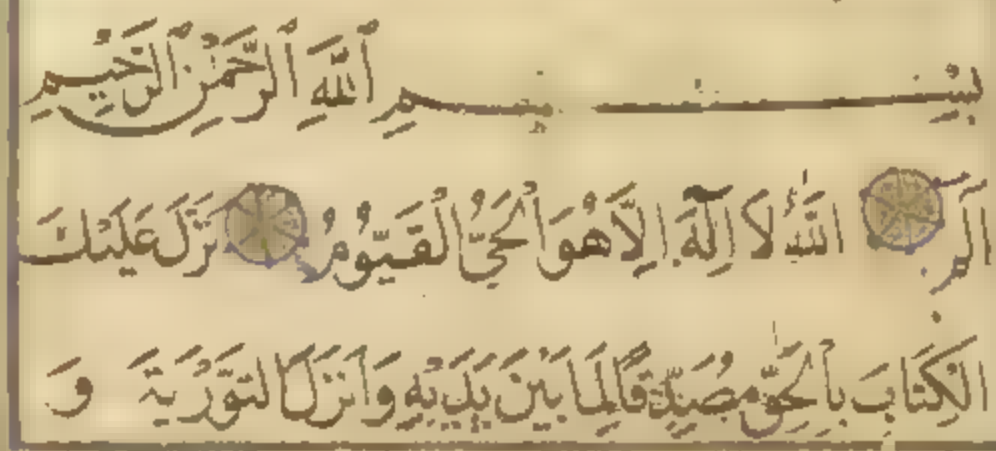 بِسْمِ اللَّهِ الرَّحْمَٰنِ الرَّحِيمِ
الٓمٓ اللَّهُ لَا إِلَٰهَ إِلَّا هُوَ الْحَيُّ الْقَيُّومُ نَزَّلَ عَلَيْكَ
الْكِتَابَ بِالْحَقِّ مُصَدِّقًا لِمَا بَيْنَ يَدَيْهِ وَأَنْزَلَ التَّوْرَيةَ وَ